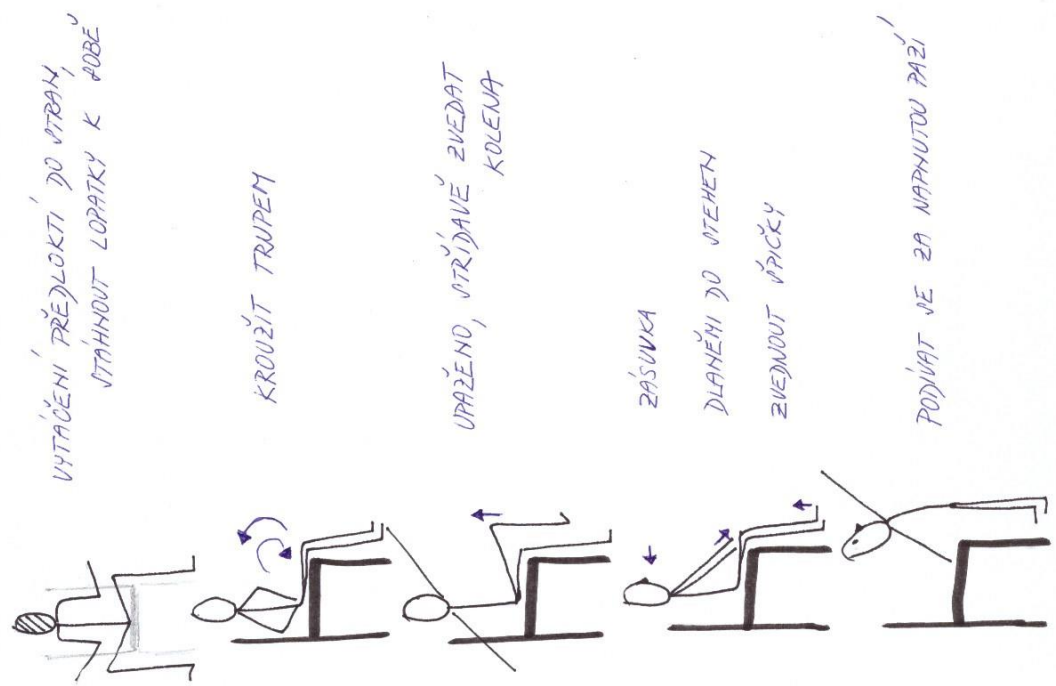 VYTÁČENÍ PŘEDLOKTÍ DO STRAN,
STÁHNOUT LOPATKY K SOBĚ
KROUŽIT TRUPEM
UPAŽENO, STŘÍDAVĚ ZVEDAT
KOLENA
ZÁSUVKA
DLANĚMI DO STEHEN
ZVEDNOUT ŠPIČKY
PODÍVAT SE ZA NAPNUTOU PAŽÍ